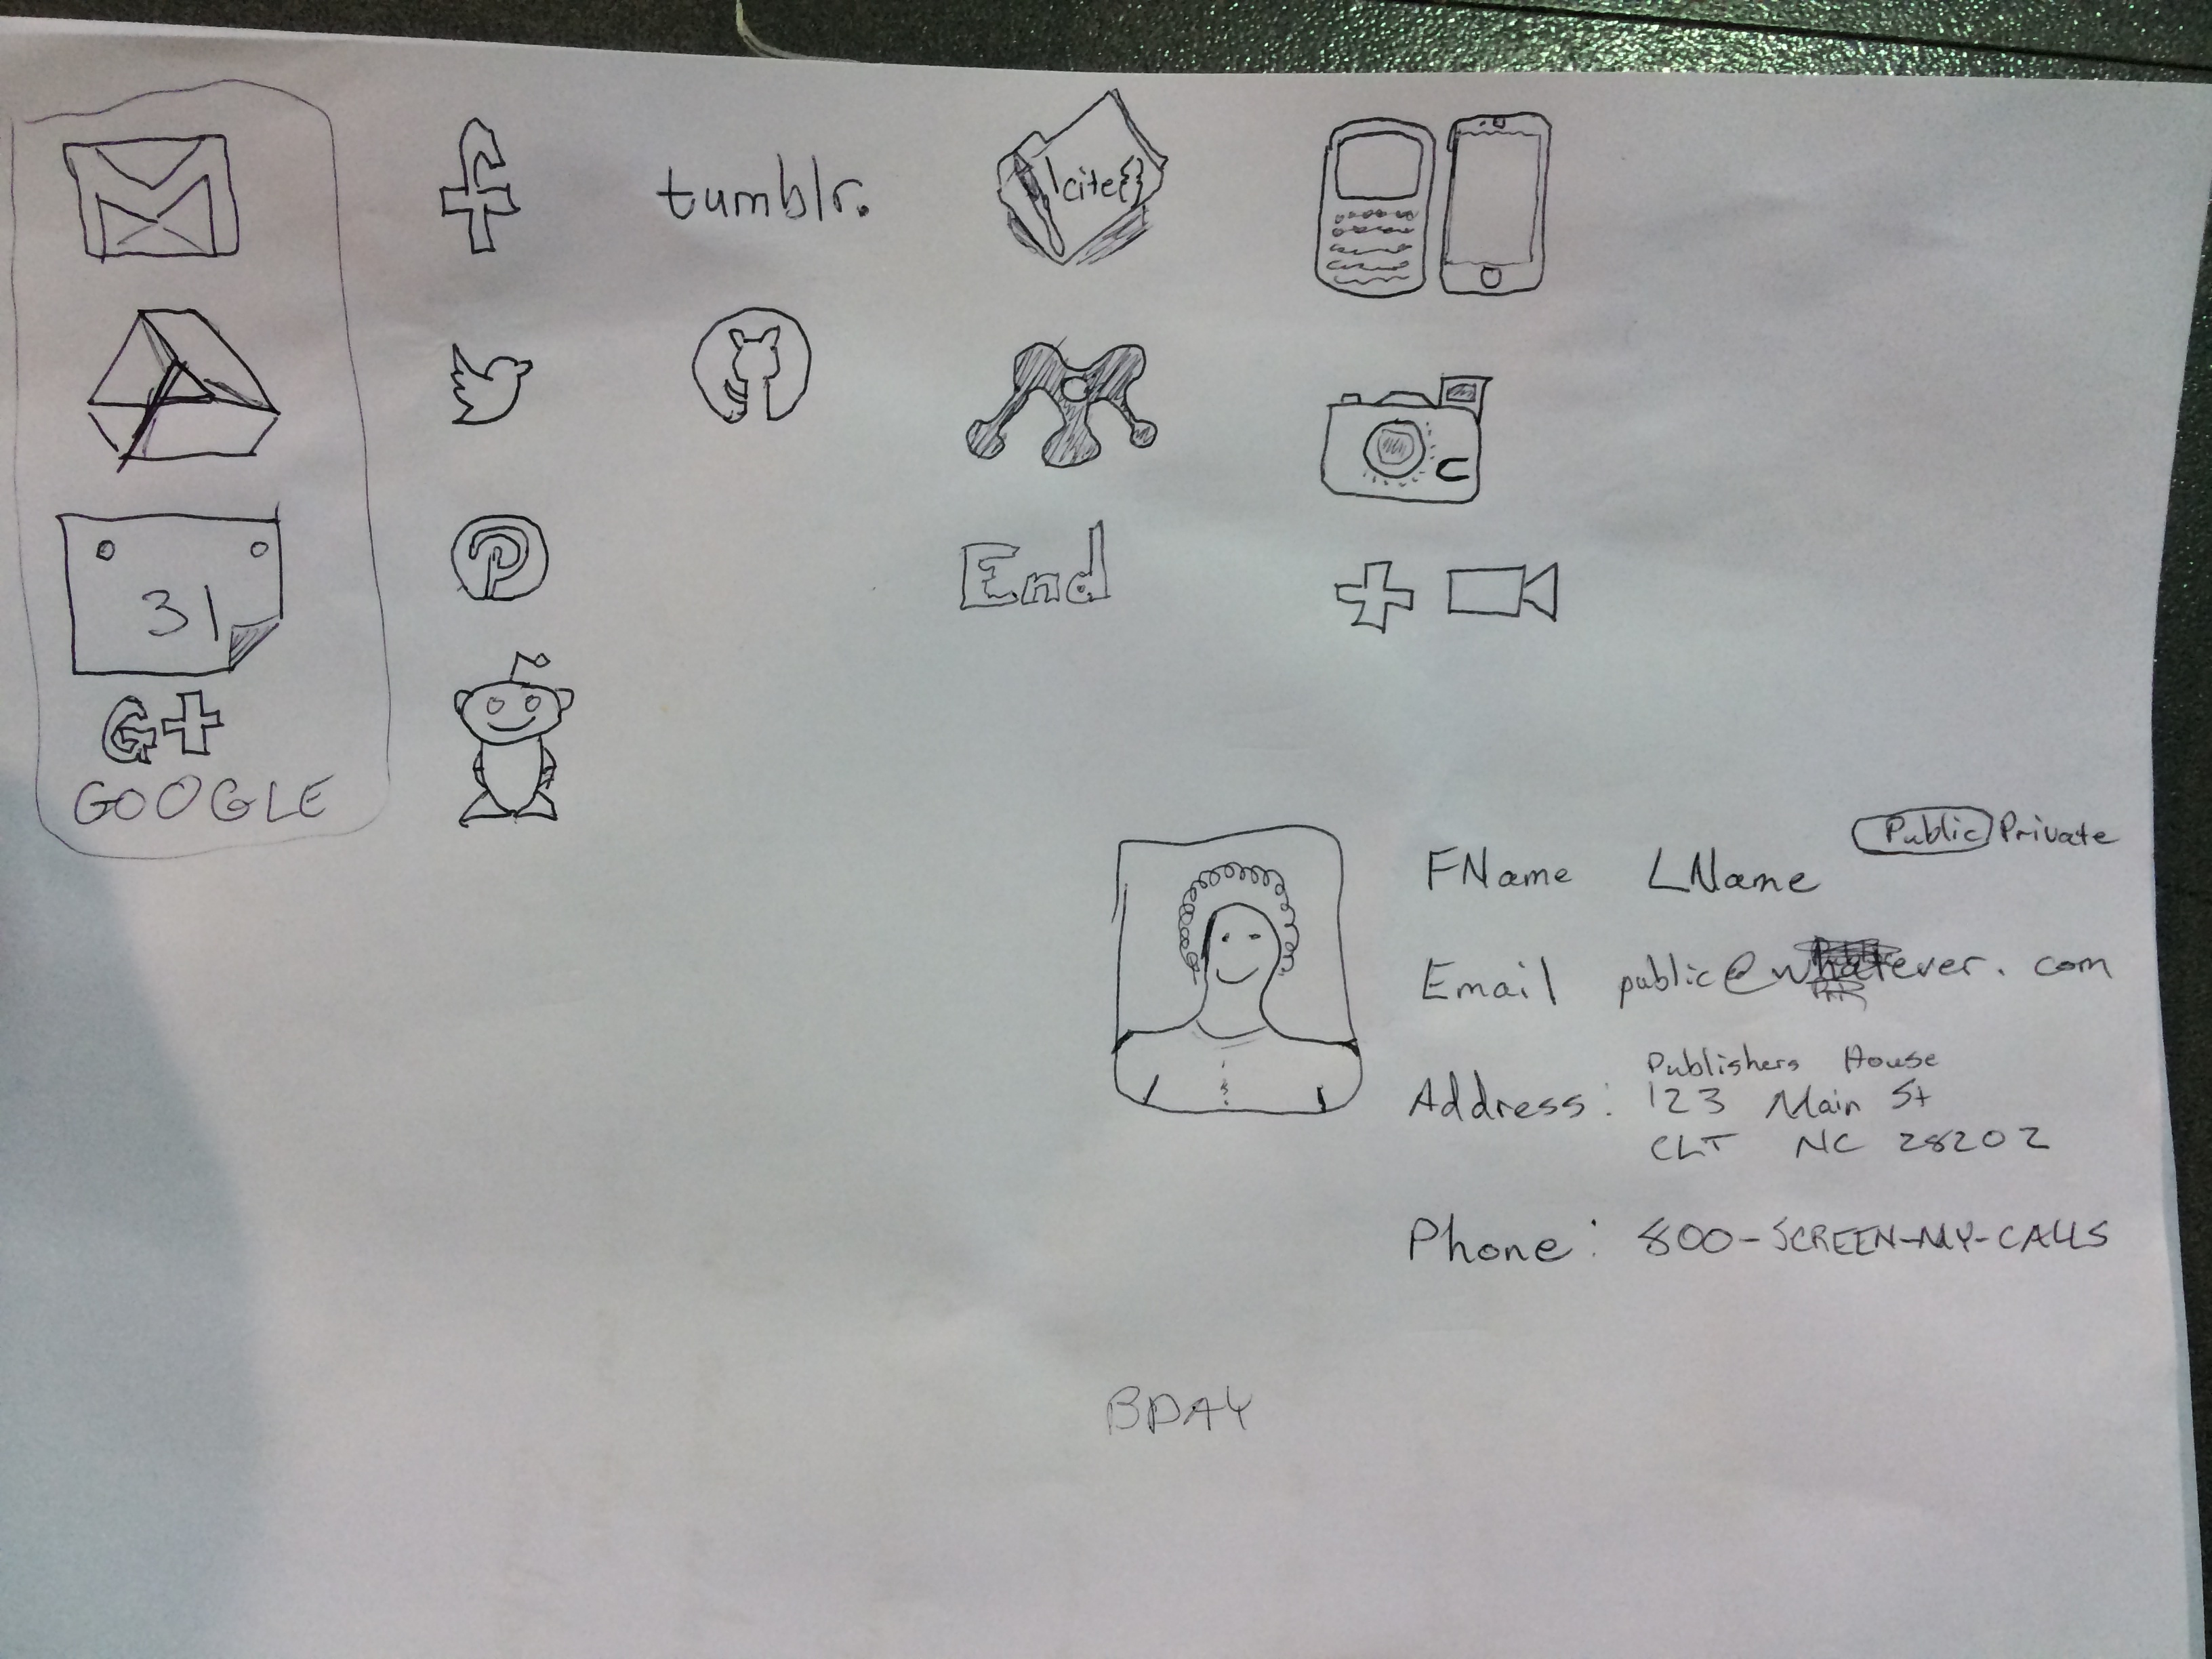 tumblr.
\cite{}
31
End
G+
GOOGLE
Public Private
FName LName
Email public@whatever.com
Publishers House
Address: 123 Main St
CLT NC 28202
Phone: 800-SCREEN-MY-CALLS
BDAY